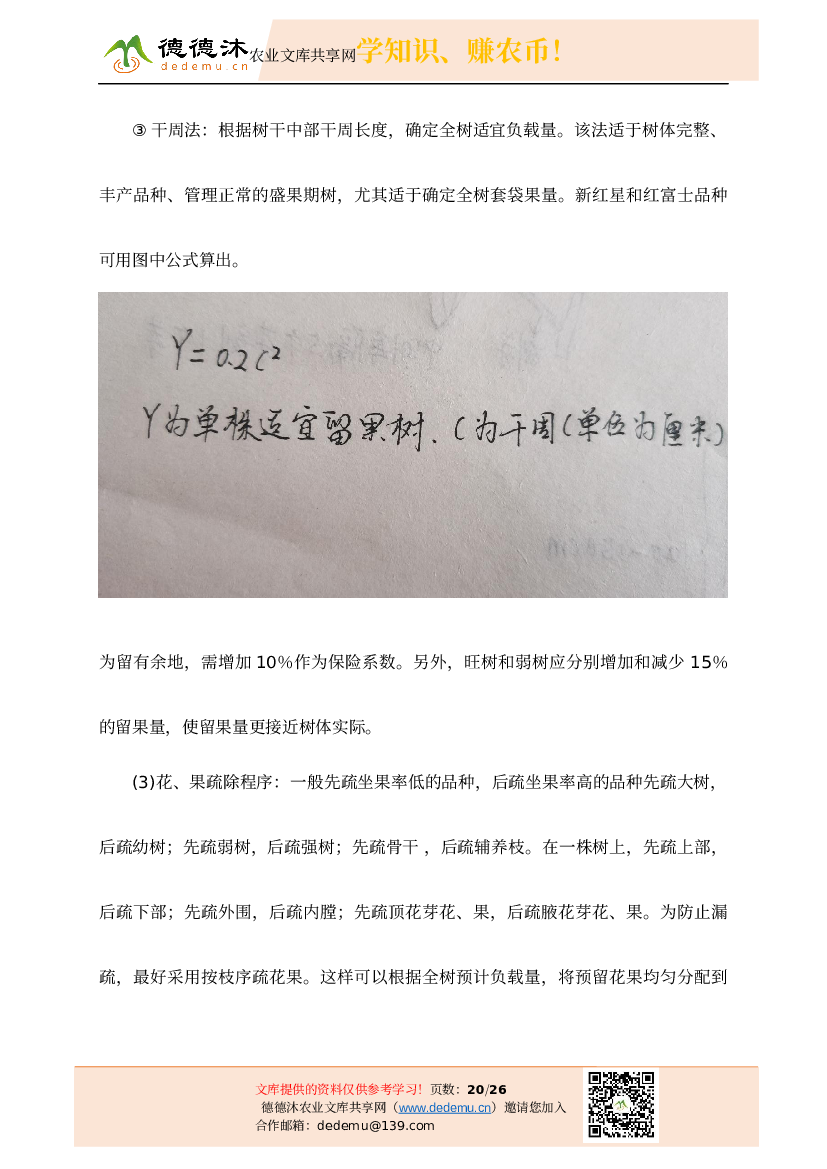 德德沐
dedemu.cn
农业文库共享网学知识、赚农币！
③干周法：根据树干中部干周长度，确定全树适宜负载量。该法适于树体完整、
丰产品种、管理正常的盛果期树，尤其适于确定全树套袋果量。新红星和红富士品种
可用图中公式算出。
Y=0.2C²
Y为单株适宜留果树.C为干周(单位为厘米)
为留有余地，需增加10%作为保险系数。另外，旺树和弱树应分别增加和减少15%
的留果量，使留果量更接近树体实际。
(3)花、果疏除程序：一般先疏坐果率低的品种，后疏坐果率高的品种先疏大树，
后疏幼树；先疏弱树，后疏强树；先疏骨干 ，后疏辅养枝。在一株树上，先疏上部，
后疏下部；先疏外围，后疏内膛；先疏顶花芽花、果，后疏腋花芽花、果。为防止漏
疏，最好采用按枝序疏花果。这样可以根据全树预计负载量，将预留花果均匀分配到
文库提供的资料仅供参考学习！页数：20/26
德德沐农业文库共享网（www.dedemu.cn）邀请您加入
合作邮箱：dedemu@139.com